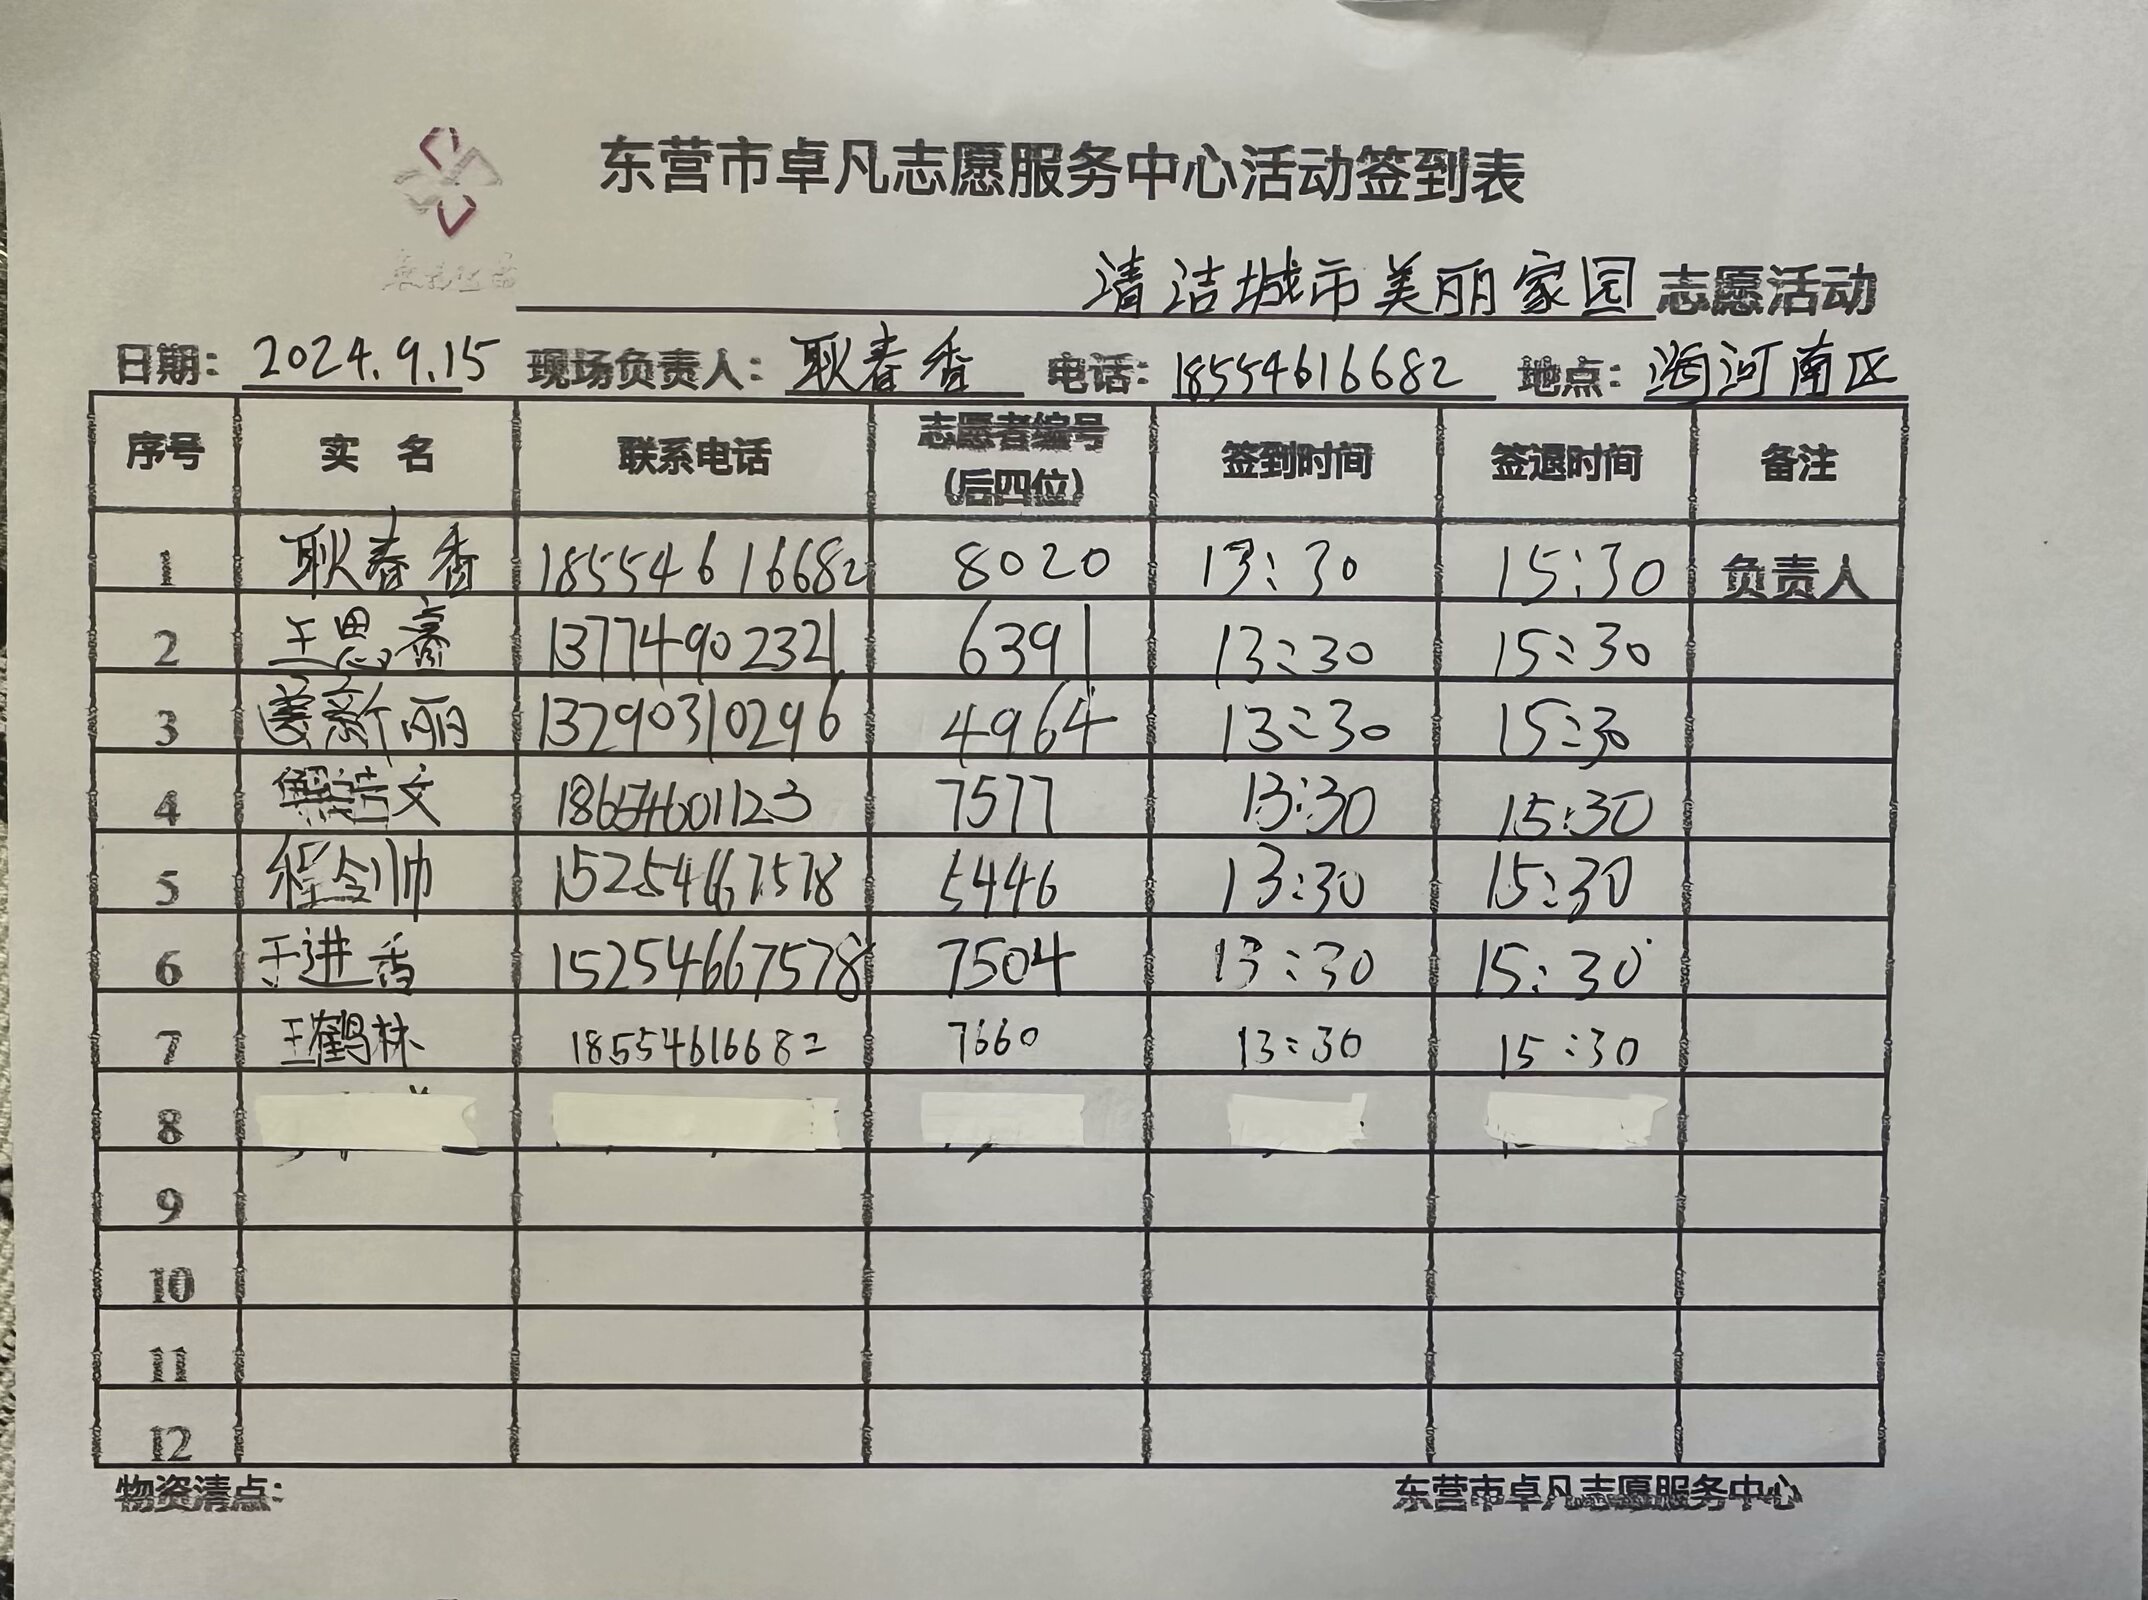 东营市卓凡志愿服务中心活动签到表
清洁城市美丽家园志愿活动
日期: 2024.9.15 现场负责人: 耿春香 电话: 18554616682 地点: 河南区
序号 实 名 联系电话 志愿者编号 (后四位) 签到时间 签退时间 备注
1 耿春香 18554616682 8020 13:30 15:30 负责人
2 王思 13774902321 6391 13:30 15:30
3 姜新丽 13290310296 4964 13:30 15:30
4 解喆文 18654601123 7577 13:30 15:30
5 程剑帅 15254667578 5446 13:30 15:30
6 于进香 15254667578 7504 13:30 15:30
7 王鹤林 18554616682 7660 13:30 15:30
8
9
10
11
12
物资清点: 东营市卓凡志愿服务中心